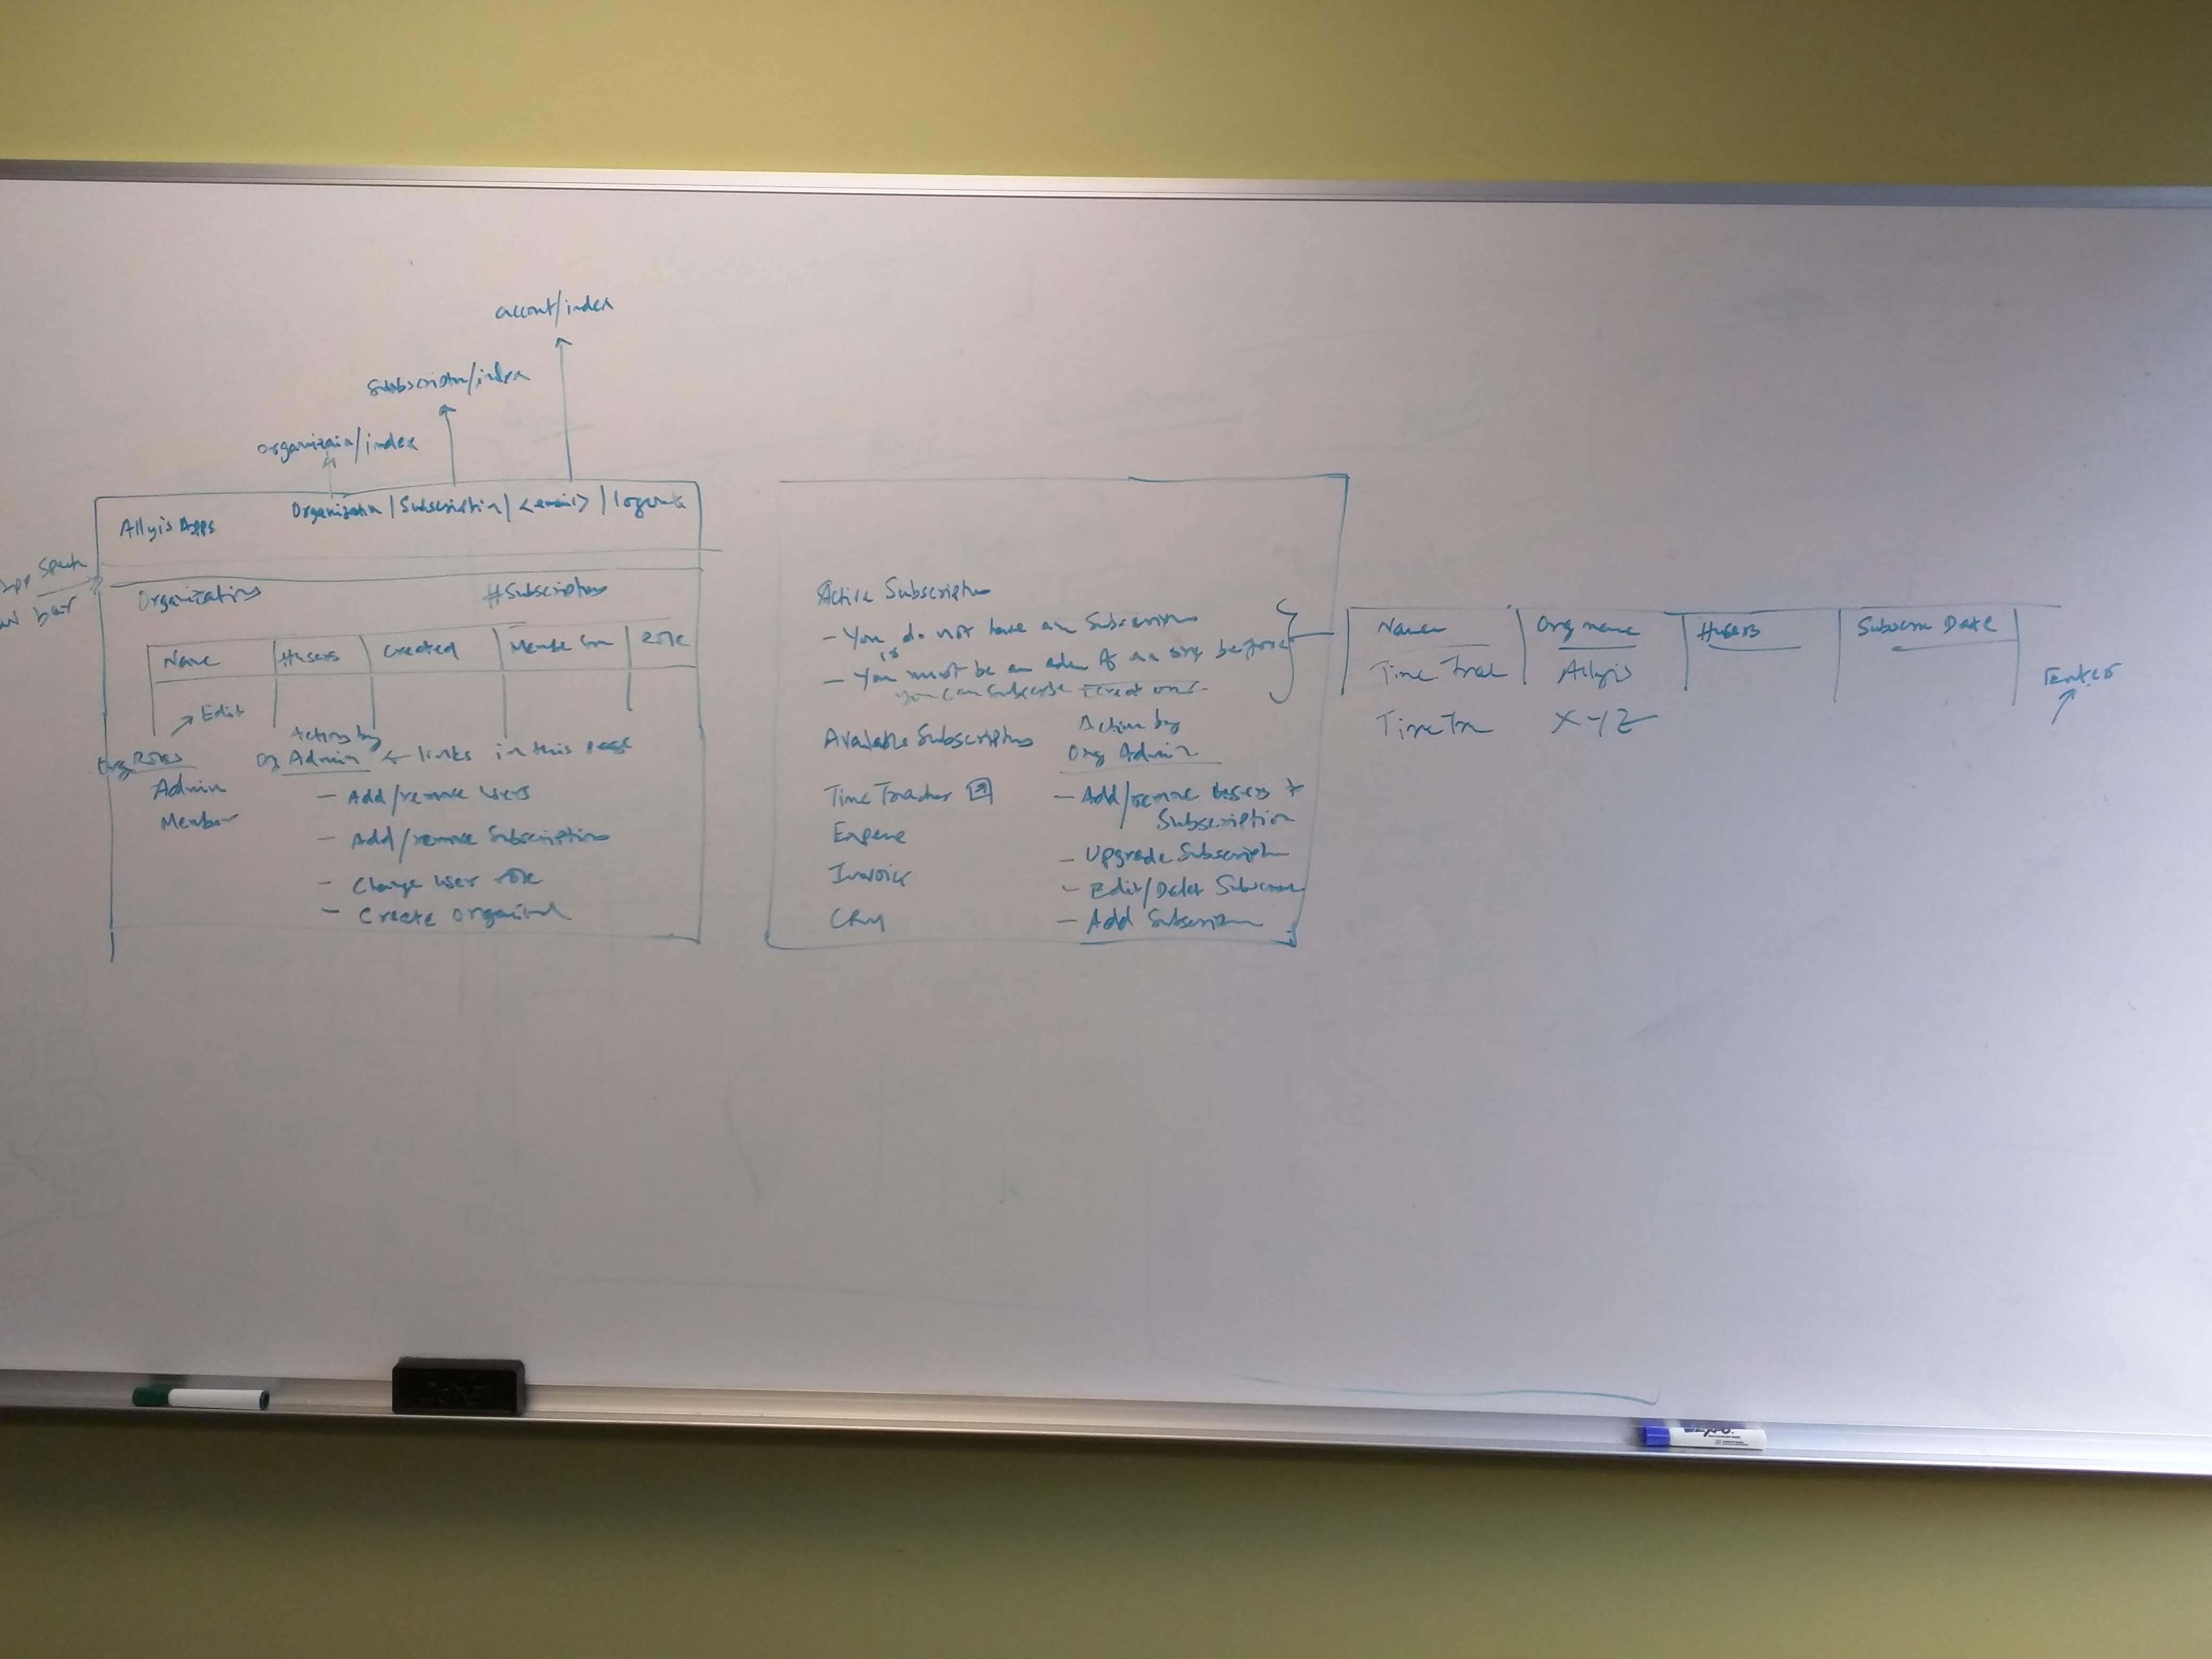 account/index
Subscription/index
organization/index
Allyis Apps
Organization | Subscription | <email> | logout
bar
Organizations
#Subscriptions
Name
#users
Created
Role
Edit
Org Roles
Admin
Member
Actions by
Org Admin ← links in this page
- Add/remove users
- Add/remove Subscriptions
- Change user role
- Create Organizatn
Active Subscriptions
- You do not have any Subscriptions
- You must be an adm of an org before
you can subscribe
Available Subscriptions
Time Tracker
Expense
Invoice
CRM
Action by
Org Admin
- Add/remove users +
Subscription
- Upgrade Subscriptn
- Edit/Delet Subscrn
- Add Subscriptn
Name
Org name
#users
Subscrn Date
Time Track
Allyis
Enter
Time Tra
XYZ
EXPO